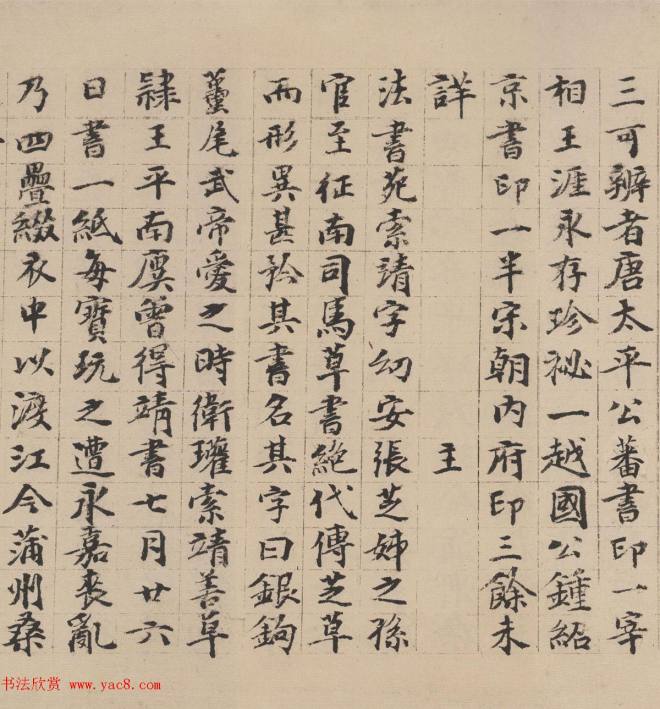 三可辨者唐太平公蕃書印一宰
相王涯永存珍祕一越國公鍾紹
京書印一半宋朝内府印三餘未
詳 王
法書苑索靖字幼安張芝姊之孫
官至征南司馬草書絶代傳芝草
而形異甚矜其書名其字曰銀鉤
蠆尾武帝愛之時衛瓘索靖善草
隸王平南廙曾得靖書七月廿六
日書一紙每寶玩之遭永嘉喪亂
乃四疊綴衣中以渡江今蒲州桑
书法欣赏 www.yac8.com